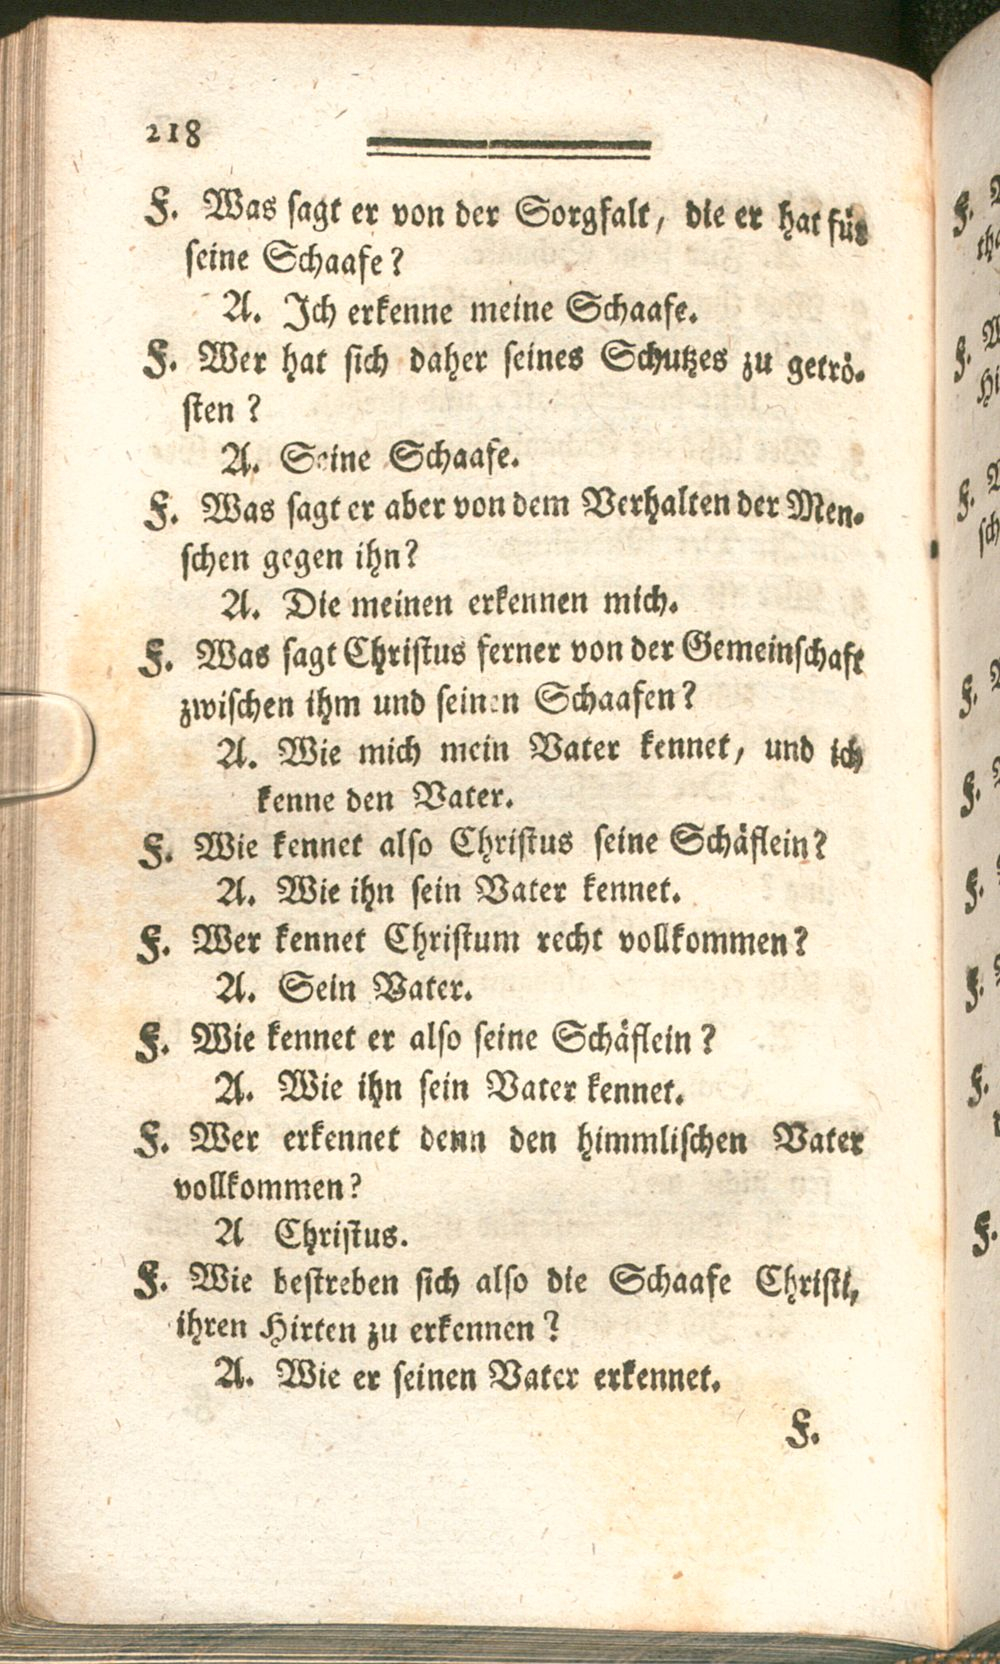 218
F. Was ſagt er von der Sorgfalt, die er hat für
ſeine Schaafe?
A. Ich erkenne meine Schaafe.
F. Wer hat ſich daher ſeines Schutzes zu getrö-
ſten?
A. Seine Schaafe.
F. Was ſagt er aber von dem Verhalten der Men-
ſchen gegen ihn?
A. Die meinen erkennen mich.
F. Was ſagt Chriſtus ferner von der Gemeinſchaft
zwiſchen ihm und ſeinen Schaafen?
A. Wie mich mein Vater kennet, und ich
kenne den Vater.
F. Wie kennet alſo Chriſtus ſeine Schäflein?
A. Wie ihn ſein Vater kennet.
F. Wer kennet Chriſtum recht vollkommen?
A. Sein Vater.
F. Wie kennet er alſo ſeine Schäflein?
A. Wie ihn ſein Vater kennet.
F. Wer erkennet denn den himmliſchen Vater
vollkommen?
A Chriſtus.
F. Wie beſtreben ſich alſo die Schaafe Chriſti,
ihren Hirten zu erkennen?
A. Wie er ſeinen Vater erkennet.
F.